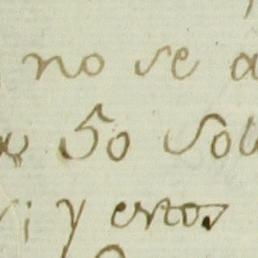 no se
50 sol
i y estos